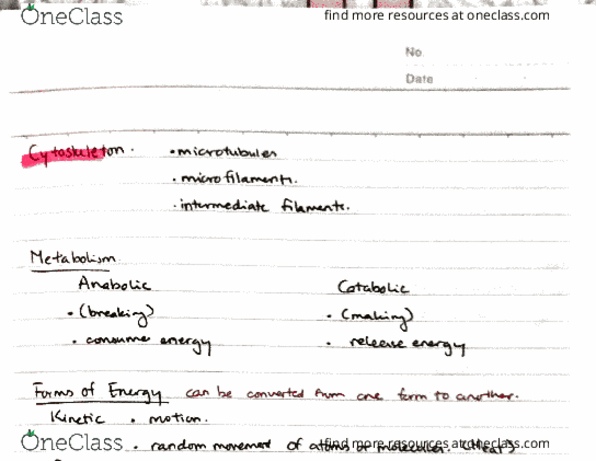 OneClass
find more resources at oneclass.com
No.
Date
Cytoskeleton. • microtubules
• microfilaments.
• intermediate filaments.
Metabolism
Anabolic Catabolic
• (breaking) • (making)
• consume energy • release energy
Forms of Energy can be converted from one form to another.
Kinetic • motion.
OneClass
• random movement of atoms or molecules. (heat)
find more resources at oneclass.com